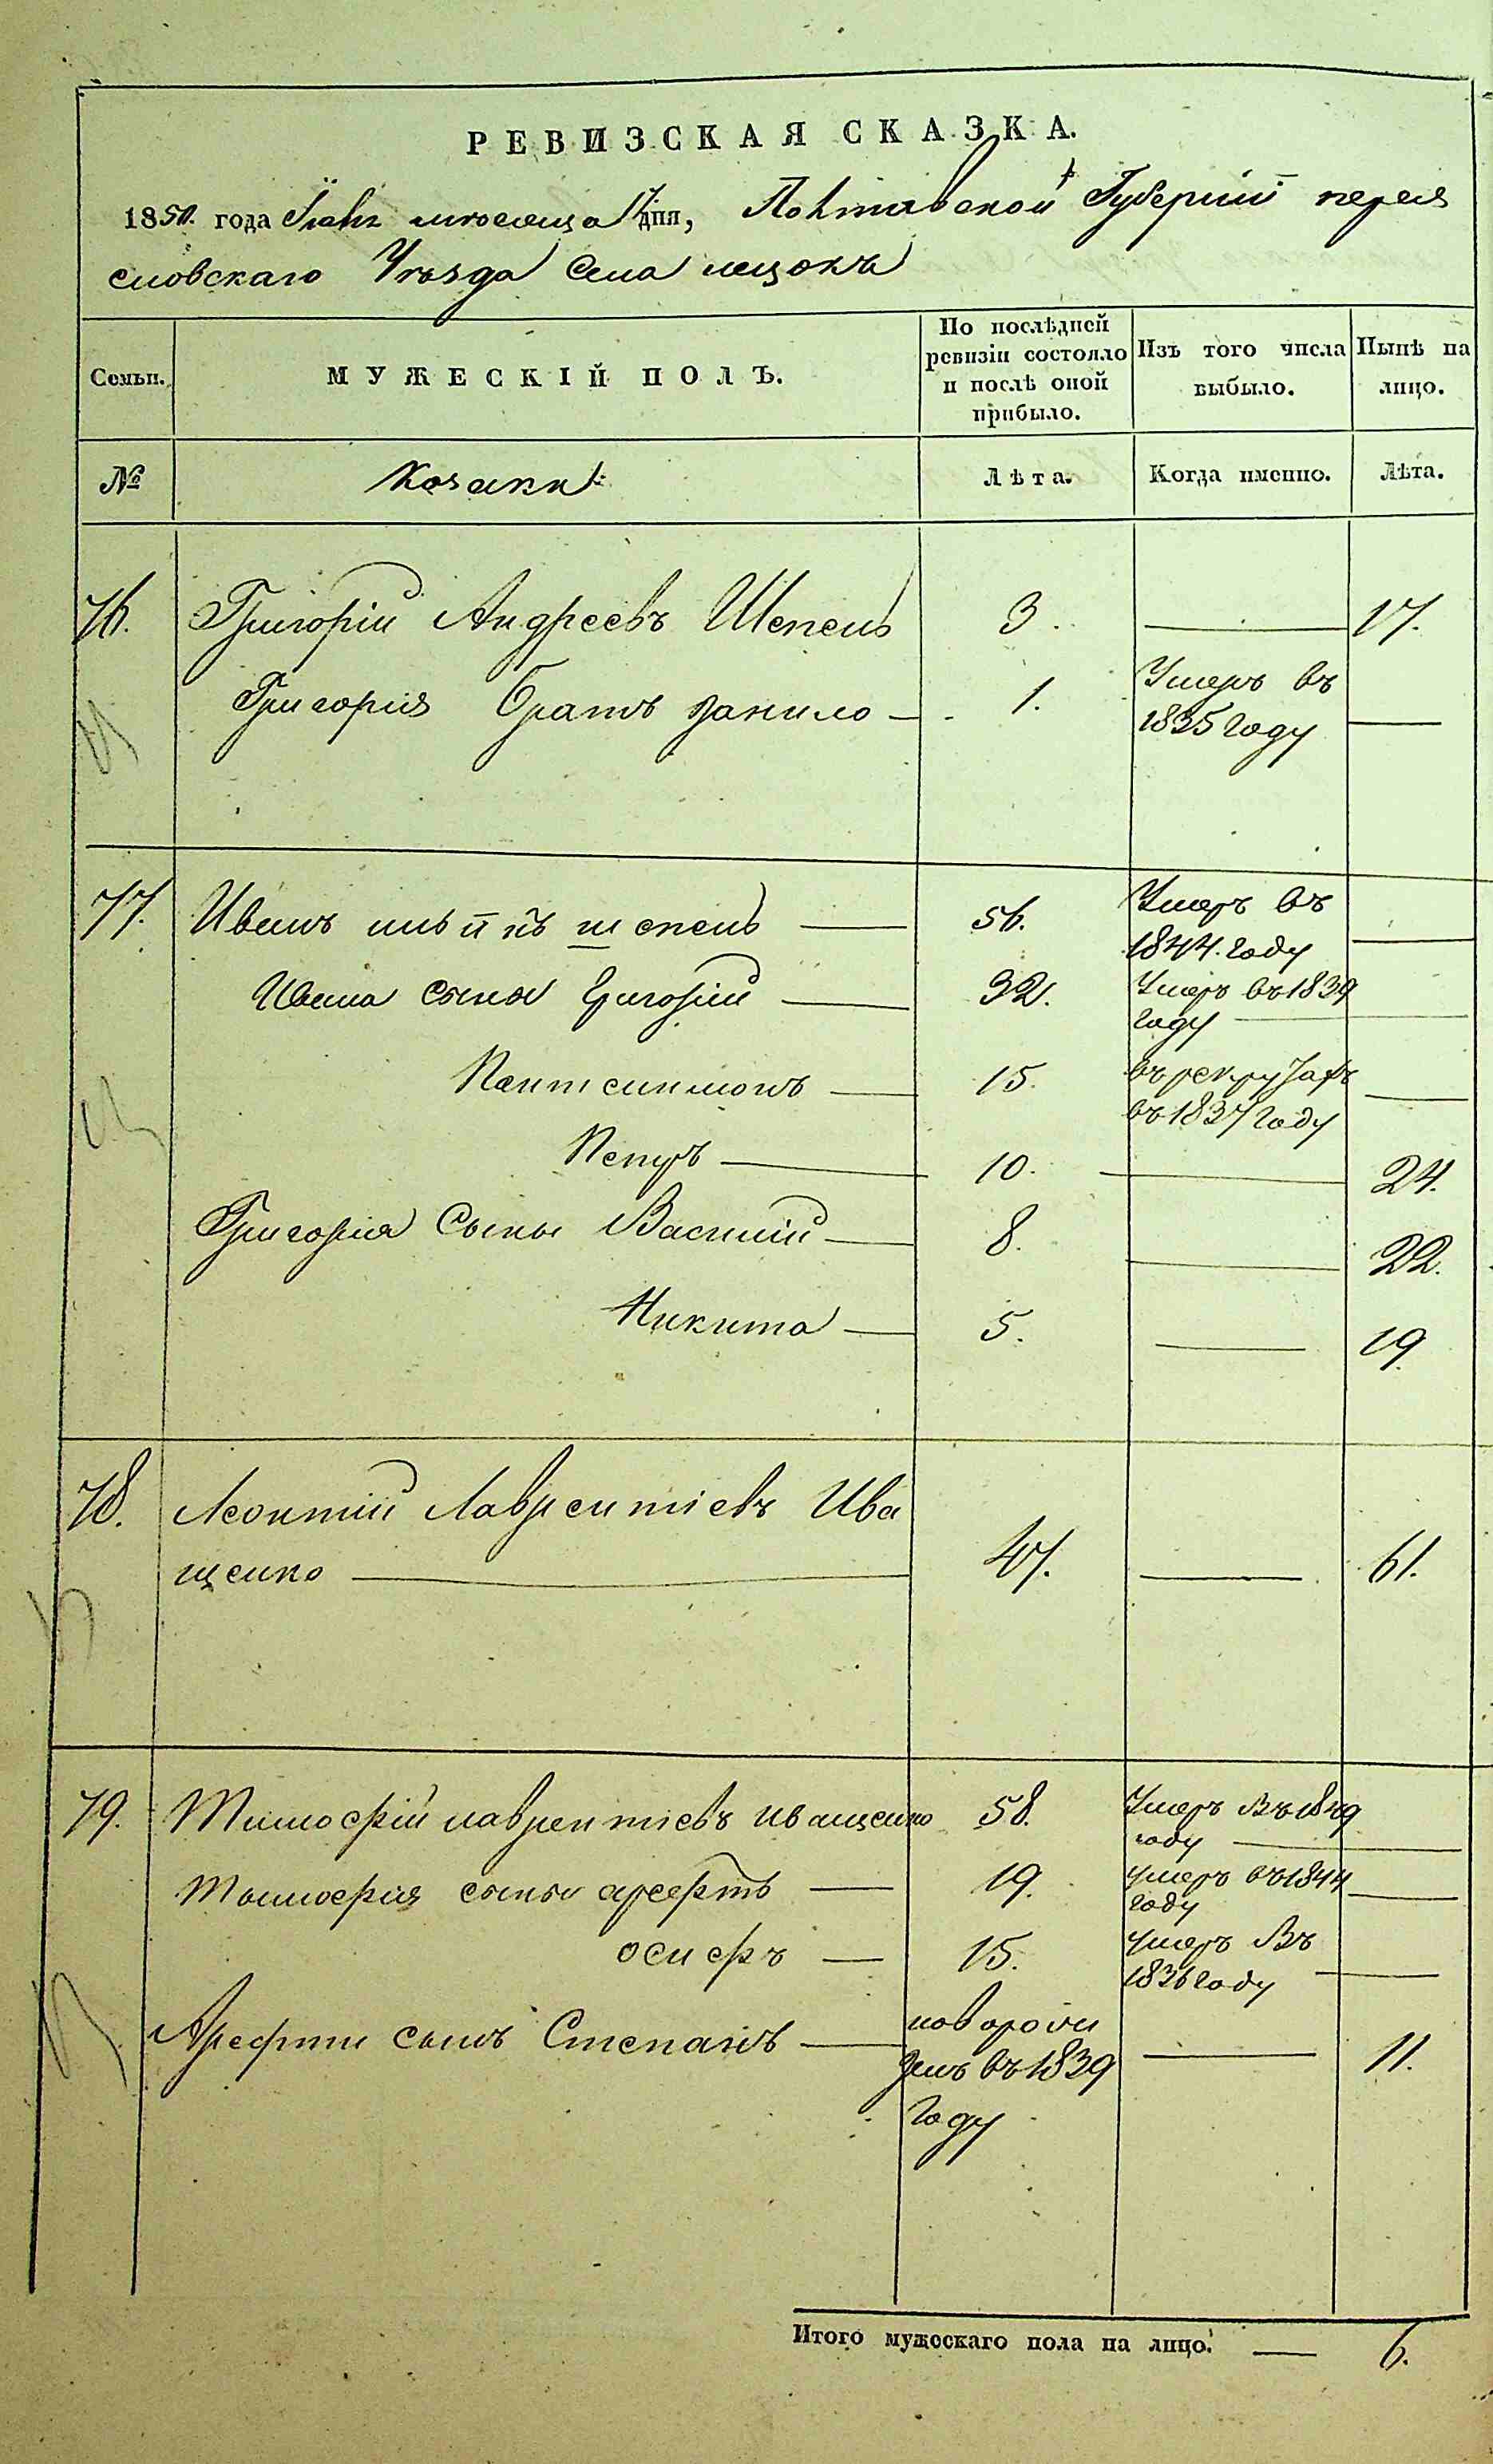 РЕВИЗСКАЯ СКАЗКА.
1850. года мѣсяца 17 дня, Полтавской Губерніи перея
словскаго Уѣзда Села лецокъ
Семьи. МУЖЕСКІЙ ПОЛЪ. По послѣдней ревизіи состояло и послѣ оной прибыло. Изъ того числа выбыло. Нынѣ на лицо.
№ Козаки: Лѣта. Когда именно. Лѣта.
76. Григорій Андреевъ Шепель 3. 17.
Григорія братъ данило 1. Умеръ въ
1835 году
77. Иванъ шепель 56. Умеръ въ
1844. году
Ивана сыновя григорій 32. Умеръ въ 1839
году
Пантелимонъ 15. въ рекрутахъ
въ 1837 году
Петръ 10. 24.
Григорія Сыны Василій 8. 22.
Никита 5. 19.
78. Леонтій Лаврентіевъ Ива
щенко 47. 61.
79. Тимофій лаврентіевъ иващенко 58. Умеръ въ 1849
году
Тимофія сыны арефтъ 19. умеръ въ 1844
году
осифъ 15. умеръ въ
1836 году
Арефти сынъ Степанъ новорож
денъ въ 1839 11.
году
Итого мужескаго пола на лицо. 6.